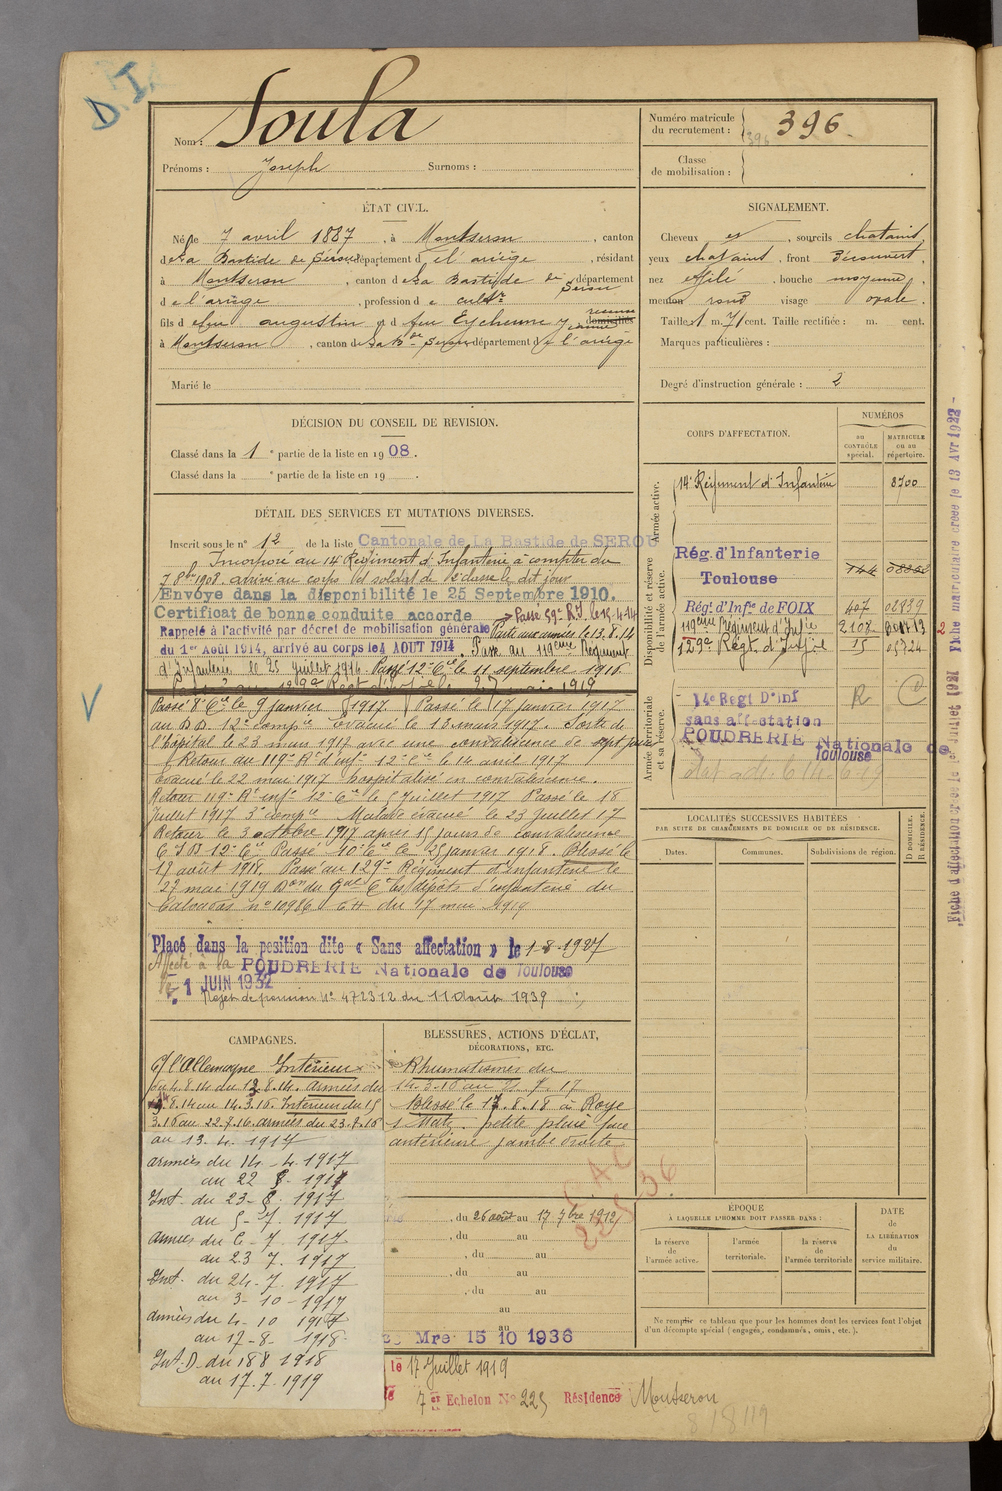 D.I.
Nom : Soula
Prénoms : Joseph Surnoms :
Numéro matricule
du recrutement : 396 396.
Classe
de mobilisation :
ÉTAT CIVIL.
Né le 7 avril 1887, à Montseron, canton
de La Bastide de Serou département de l'ariège, résidant
à Montseron, canton de La Bastide de Serou département
de l'ariège, profession de cultr
fils de feu augustin et de feu Eychenne domiciliés
à Montseron, canton de La Bde Serou département de l'ariège
Marié le
SIGNALEMENT.
Cheveux et, sourcils chatains,
yeux chatains, front découvert,
nez effilé, bouche moyenne,
menton rond visage ovale.
Taille : 1 m. 71 cent. Taille rectifiée : m. cent.
Marques particulières :
Degré d'instruction générale : 2
DÉCISION DU CONSEIL DE REVISION.
Classé dans la 1e partie de la liste en 1908.
Classé dans la e partie de la liste en 19 .
CORPS D'AFFECTATION.
NUMÉROS
au CONTRÔLE spécial.
MATRICULE ou au répertoire.
Armée active.
14e Régiment d'Infanterie 8700
Disponibilité et réserve de l'armée active.
Rég. d'Infanterie
Toulouse 144
Rég. d'Infie de FOIX 407 02839
119ème Régiment d'Infie 2108
129e Régt. d'Infie 15 05724
Armée territoriale et sa réserve.
14e Regt D'inf R
sans affectation
POUDRERIE Nationale de
Toulouse
DÉTAIL DES SERVICES ET MUTATIONS DIVERSES.
Inscrit sous le n° 12 de la liste Cantonale de La Bastide de SEROU
Incorporé au 14e Régiment d'Infanterie à compter du
7 8bre 1908. arrivé au corps et soldat de 2e classe le dit jour
Envoyé dans la disponibilité le 25 Septembre 1910.
Certificat de bonne conduite accordé Passé 59e R.I. le 15-4-14
Rappelé à l'activité par décret de mobilisation générale Parti aux armées le 13.8.14
du 1er Août 1914, arrivé au corps le 4 AOUT 1914. Passé au 119ème Régiment
d'Infanterie le 25 juillet 1916. Passé 12e Cie le 11 septembre 1916.
Passé 8e Cie le 9 janvier 1917. Passé le 17 janvier 1917
au DD 12e compie évacué le 13 mars 1917. Sorti de
l'hôpital le 23 mars 1917 avec une convalescence de sept jours
Retour au 119e Rt d'inf. 12e Cie le 14 avril 1917
évacué le 22 mai 1917 hospitalisé en convalescence.
Retour 119e Rt infie 12e Cie le 5 juillet 1917 Passé le 18
juillet 1917 3e compie Malade évacué le 23 juillet 17
Retour le 3 octobre 1917 après 15 jours de convalescence
C I D 12e Cie Passé 10e Cie le 25 janvier 1918. Blessé le
17 août 1918. Passé au 129e Régiment d'infanterie le
27 mai 1919 Don du Gal Ct les dépôts d'infanterie du
Calvados n° 10986 CH du 17 mai 1919
Placé dans la position dite « Sans affectation » le 1-8-1927
Affecté à la POUDRERIE Nationale de Toulouse
le 1 JUIN 1932
Rejet de pension N° 472312 du 11 Août 1939
LOCALITÉS SUCCESSIVES HABITÉES
PAR SUITE DE CHANGEMENTS DE DOMICILE OU DE RÉSIDENCE.
Dates. Communes. Subdivisions de région. D DOMICILE. R RÉSIDENCE.
CAMPAGNES.
c/ l'Allemagne Intérieur
du 4.8.14 du 12.8.14. Armées du
13.8.14 au 14.3.16. Intérieur du 15
3.16 au 22.7.16. armées du 23.7.16
au 13.4.1917
armées du 14-4-1917
au 22 5.1917
Int. du 23-5.1917
au 5-7.1917
armées du 6-7.1917
au 23 7.1917
Int. du 24-7.1917
au 3-10-1917
armées du 4-10 1917
au 17-8-1918
Int. D. du 18 8 1918
au 17.7.1919
BLESSURES, ACTIONS D'ÉCLAT,
DÉCORATIONS, ETC.
Rhumatismes du
Blessé le 17.8.18 à Roye
s/Matz. petite plaie face
antérieure jambe droite
, du 26 août au 17 7bre 1912
, du au
, du au
, du au
, du au
au
au
Mre 15 10 1936
le 17 Juillet 1919
7e Echelon N° 225 Résidence Montseron
8/8/19
ÉPOQUE
À LAQUELLE L'HOMME DOIT PASSER DANS :
la réserve de l'armée active.
l'armée territoriale.
la réserve de l'armée territoriale
DATE
de
LA LIBÉRATION
du
service militaire.
Ne remplir ce tableau que pour les hommes dont les services font l'objet
d'un décompte spécial (engagés, condamnés, omis, etc.).
Fiche matriculaire créée le 13 Avr 1922